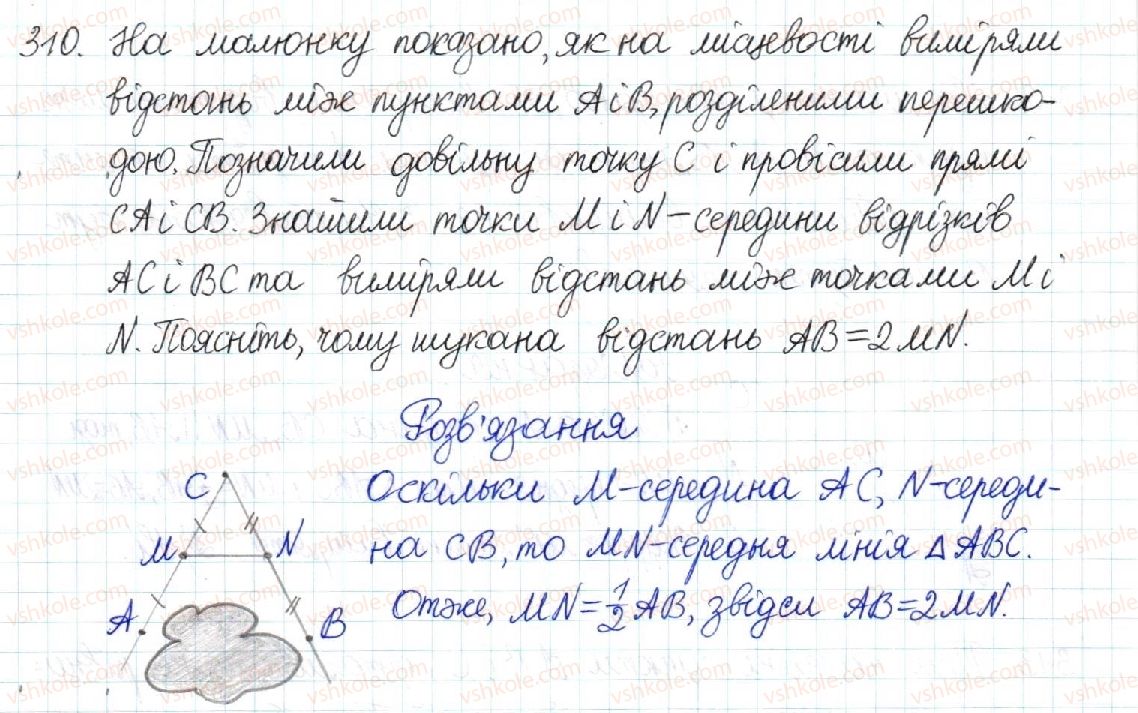 310. На малюнку показано, як на місцевості виміряли
відстань між пунктами A і B, розділеними перешко-
дою. Позначили довільну точку C і провісили прямі
CA і CB. Знайшли точки M і N – середини відрізків
AC і BC та виміряли відстань між точками M і
N. Поясніть, чому шукана відстань AB = 2MN.
Розв'язання
Оскільки M – середина AC, N – середи-
на CB, то MN – середня лінія △ABC.
Отже, MN = 1/2 AB, звідси AB = 2MN.
C
M N
A B